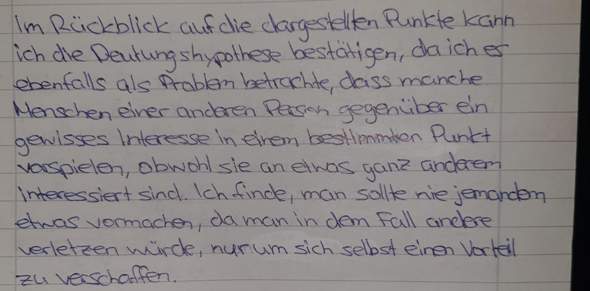 Im Rückblick auf die dargestellten Punkte kann
ich die Deutungshypothese bestätigen, da ich es
ebenfalls als Problem betrachte, dass manche
Menschen einer anderen Person gegenüber ein
gewisses Interesse in einem bestimmten Punkt
vorspielen, obwohl sie an etwas ganz anderem
interessiert sind. Ich finde, man sollte nie jemandem
etwas vormachen, da man in dem Fall andere
verletzen würde, nur um sich selbst einen Vorteil
zu verschaffen.